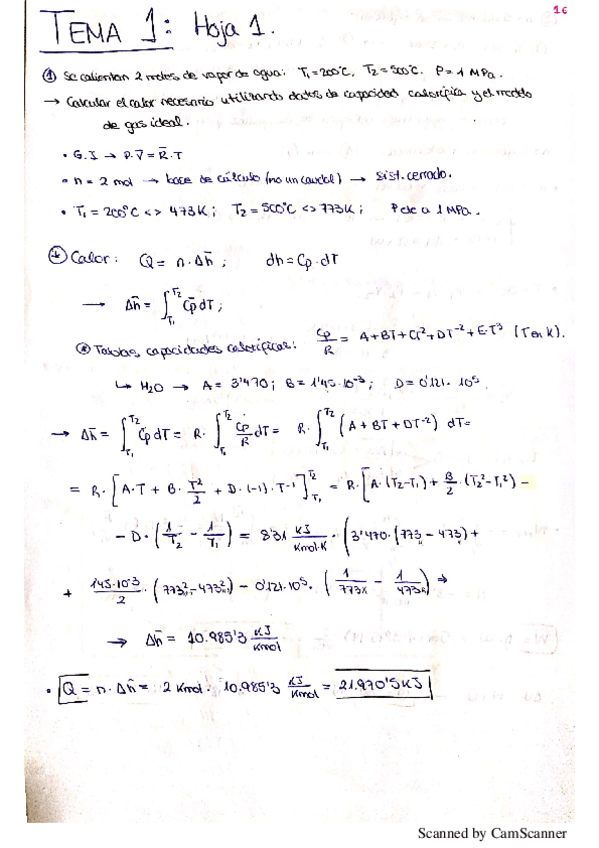 1C
TEMA 1: Hoja 1.
① Se calientan 2 moles de vapor de agua: T₁=200°C, T₂=500°C, P=1 MPa.
→ Calcular el calor necesario utilizando datos de capacidad calorífica y el modelo
de gas ideal.
• G.I → P.V̄ = R̄.T
• n = 2 mol → base de cálculo (no un caudal) → sist. cerrado.
• T₁ = 200°C <> 473K; T₂ = 500°C <> 773K; Pcte a 1 MPa.
Calor: Q = n·Δh̄; dh = Cp·dT
→ Δh̄ = ∫T₁T₂ C̄p dT;
Tablas, capacidades caloríficas: Cp/R = A+BT+CT²+DT⁻²+E·T³ (T en K).
↳ H₂O → A = 3'470; B = 1'45·10⁻³; D = 0'121·10⁵.
→ Δh̄ = ∫T₁T₂ C̄p dT = R·∫T₁T₂ Cp/R dT = R·∫T₁T₂ (A+BT+DT⁻²) dT=
= R·[A·T + B·T²/2 + D·(-1)·T⁻¹]T₁T₂ = R·[A·(T₂-T₁) + B/2·(T₂²-T₁²) -
- D·(1/T₂ - 1/T₁) = 8'31 KJ/Kmol·K · (3'470·(773-473) +
+ 1'45·10⁻³/2 · (773²-473²) - 0'121·10⁵·(1/773K - 1/473K) ⇒
⇒ Δh̄ = 10.985'3 KJ/Kmol
• Q = n·Δh̄ = 2 Kmol · 10.985'3 KJ/Kmol = 21.970'5 KJ
Scanned by CamScanner